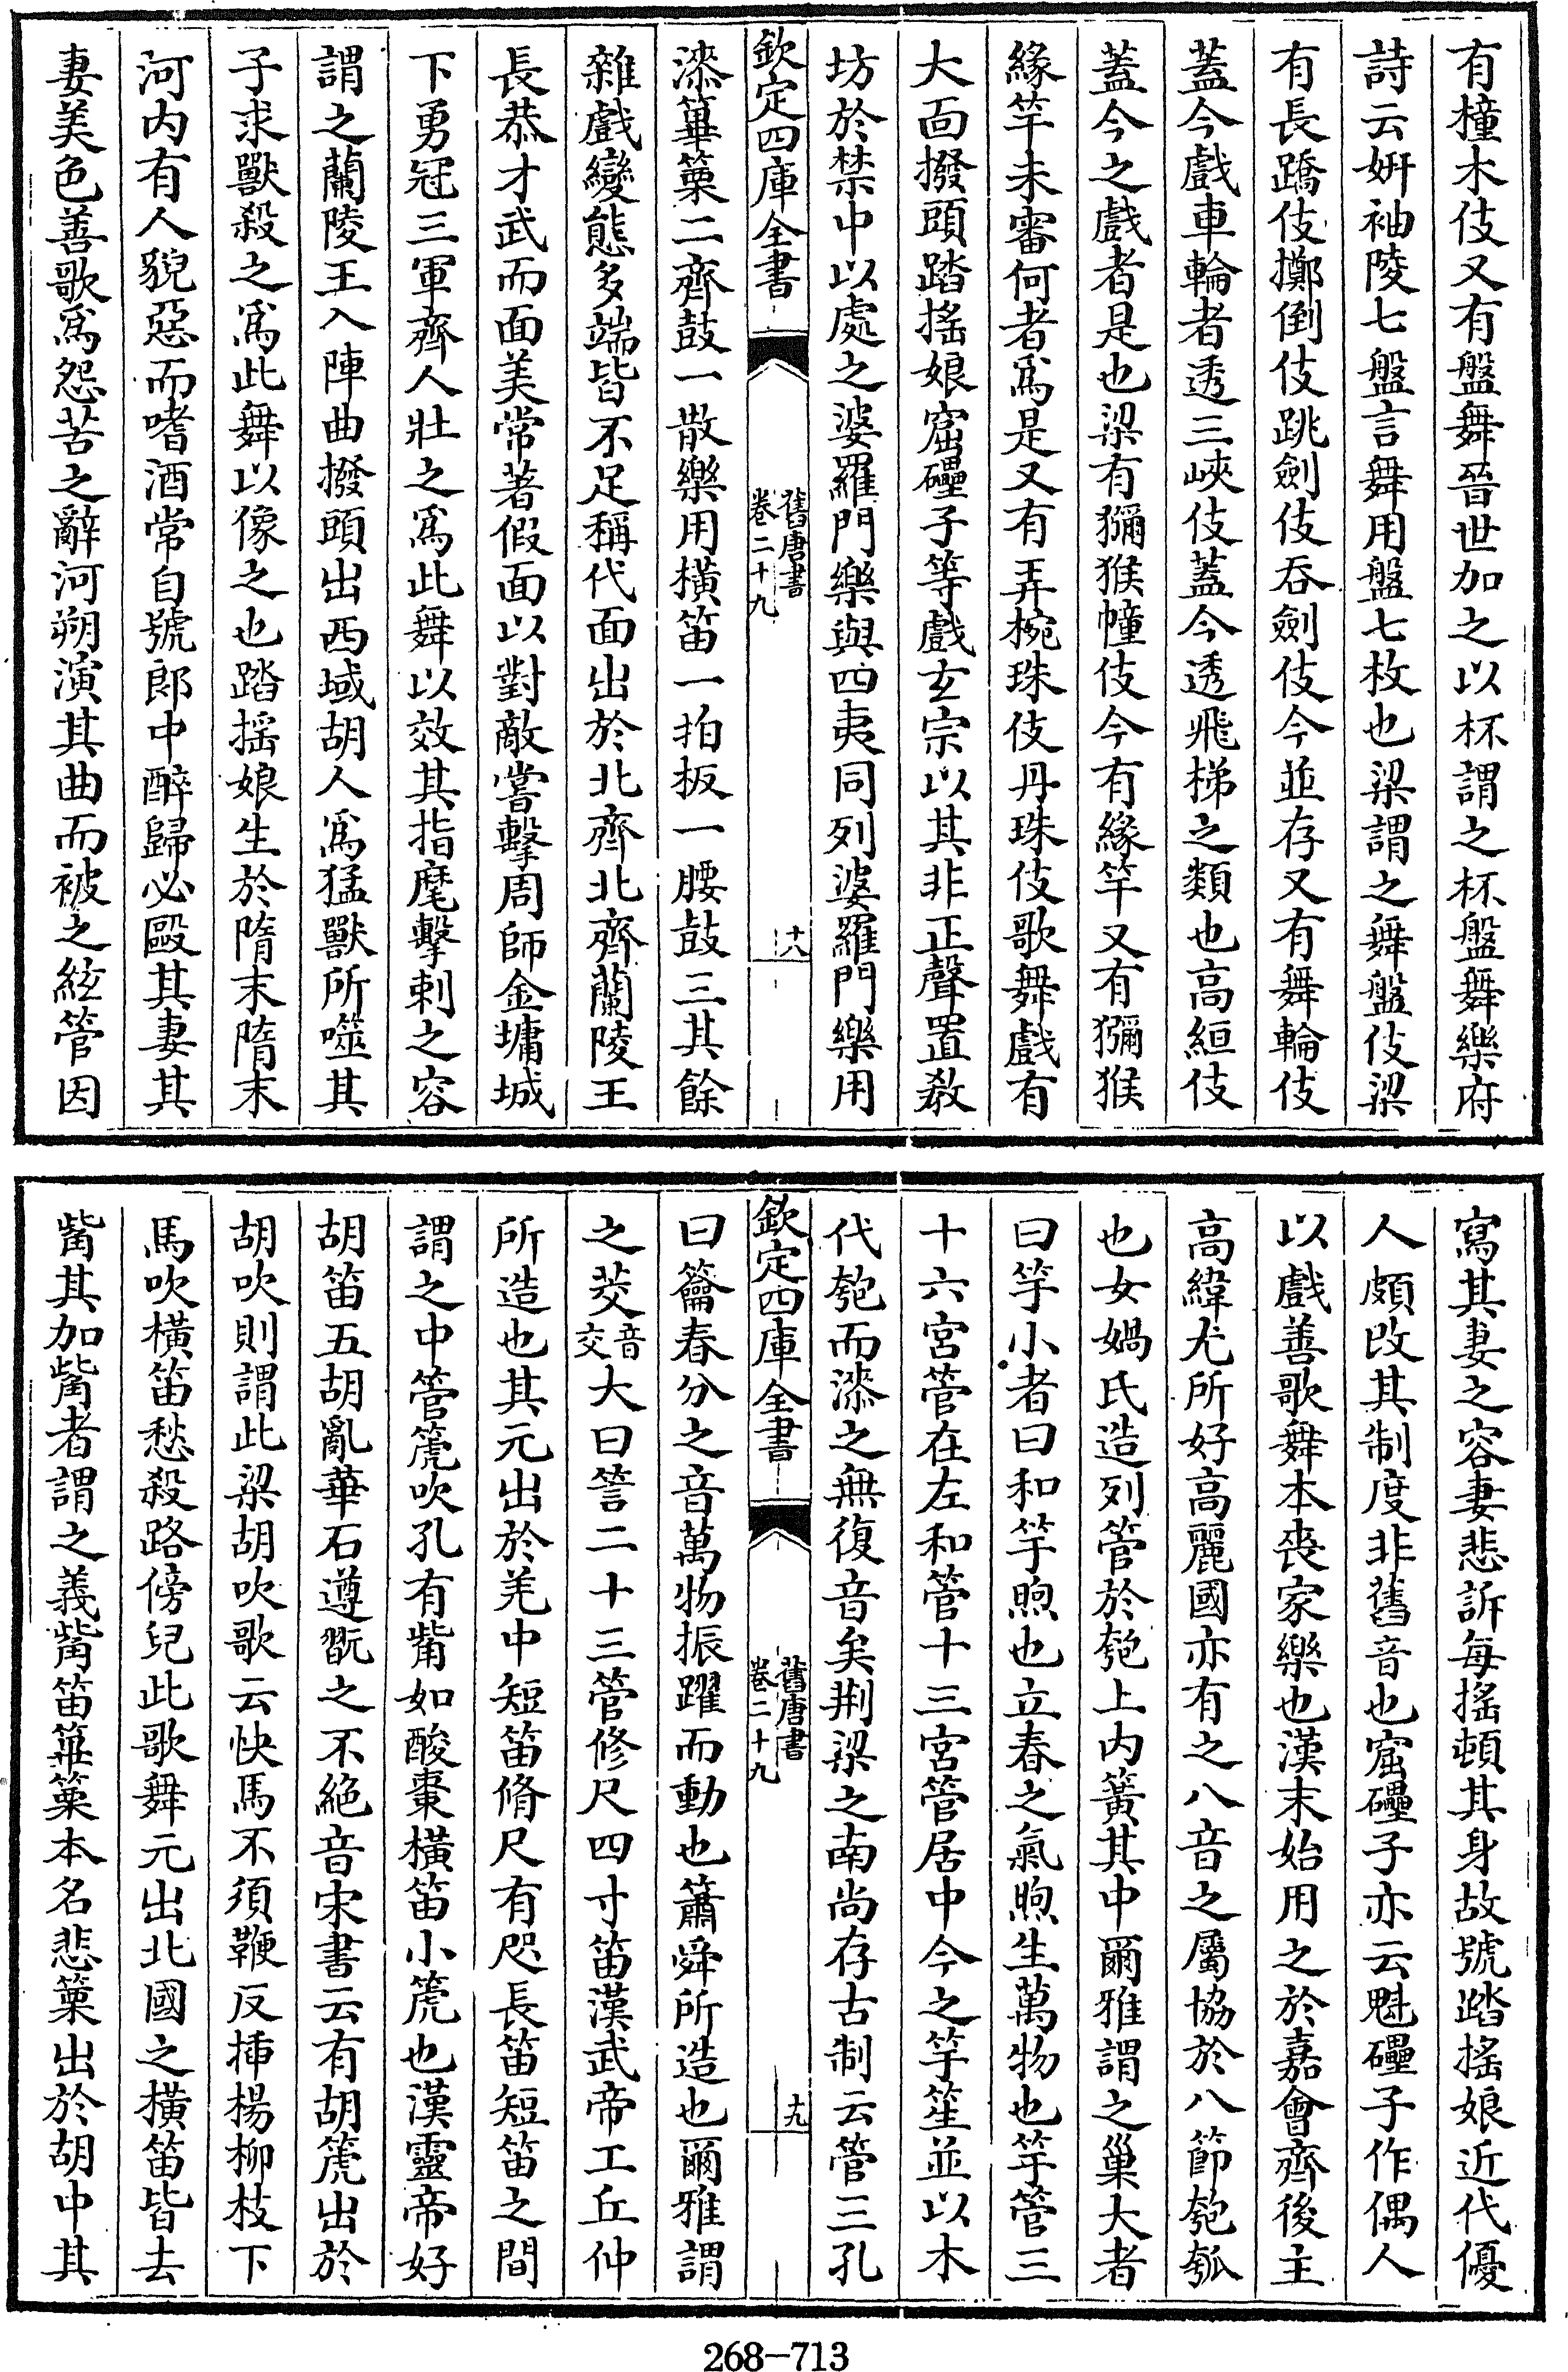 有橦木伎又有盤舞晉世加之以杯謂之杯盤舞樂府
詩云妍袖陵七盤言舞用盤七枚也梁謂之舞盤伎梁
有長蹻伎擲倒伎跳劍伎吞劍伎今並存又有舞輪伎
蓋今戲車輪者透三峽伎蓋今透飛梯之類也高絙伎
蓋今之戲者是也梁有獼猴幢伎今有緣竿又有獼猴
緣竿未審何者爲是又有弄椀珠伎丹珠伎歌舞戲有
大面撥頭踏搖娘窟礧子等戲玄宗以其非正聲置教
坊於禁中以處之婆羅門樂與四夷同列婆羅門樂用
欽定四庫全書
舊唐書
卷二十九
十八
漆篳篥二齊鼓一散樂用橫笛一拍板一腰鼓三其餘
雜戲變態多端皆不足稱代面出於北齊北齊蘭陵王
長恭才武而面美常著假面以對敵嘗擊周師金墉城
下勇冠三軍齊人壯之爲此舞以效其指麾擊刺之容
謂之蘭陵王入陣曲撥頭出西域胡人爲猛獸所噬其
子求獸殺之爲此舞以像之也踏搖娘生於隋末隋末
河內有人貌惡而嗜酒常自號郎中醉歸必毆其妻其
妻美色善歌爲怨苦之辭河朔演其曲而被之絃管因
寫其妻之容妻悲訴每搖頓其身故號踏搖娘近代優
人頗改其制度非舊音也窟礧子亦云魁礧子作偶人
以戲善歌舞本喪家樂也漢末始用之於嘉會齊後主
高緯尤所好高麗國亦有之八音之屬協於八節匏瓠
也女媧氏造列管於匏上內簧其中爾雅謂之巢大者
曰竽小者曰和竽煦也立春之氣煦生萬物也竽管三
十六宮管在左和管十三宮管居中今之竽笙並以木
代匏而漆之無復音矣荆梁之南尚存古制云管三孔
欽定四庫全書
舊唐書
卷二十九
十九
曰籥春分之音萬物振躍而動也簫舜所造也爾雅謂
之茭音交大曰䇾二十三管修尺四寸笛漢武帝工丘仲
所造也其元出於羌中短笛脩尺有咫長笛短笛之間
謂之中管篪吹孔有觜如酸棗橫笛小篪也漢靈帝好
胡笛五胡亂華石遵翫之不絕音宋書云有胡篪出於
胡吹則謂此梁胡吹歌云快馬不須鞭反揷楊柳枝下
馬吹橫笛愁殺路傍兒此歌舞元出北國之橫笛皆去
觜其加觜者謂之義觜笛篳篥本名悲篥出於胡中其
268-713